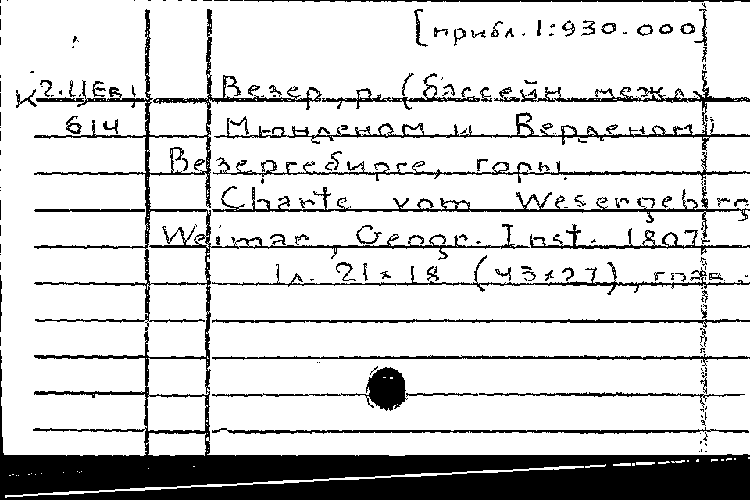 [прибл. 1:930.000]
К 2.ЦЕв, Везер, р. (бассейн между
614 Мюнденом и Верденом)
Везергебирге, горы
Charte vom Wesergebirg
Weimar, Geogr. Inst. 1807.
1л. 21×18 (43×27), грав.